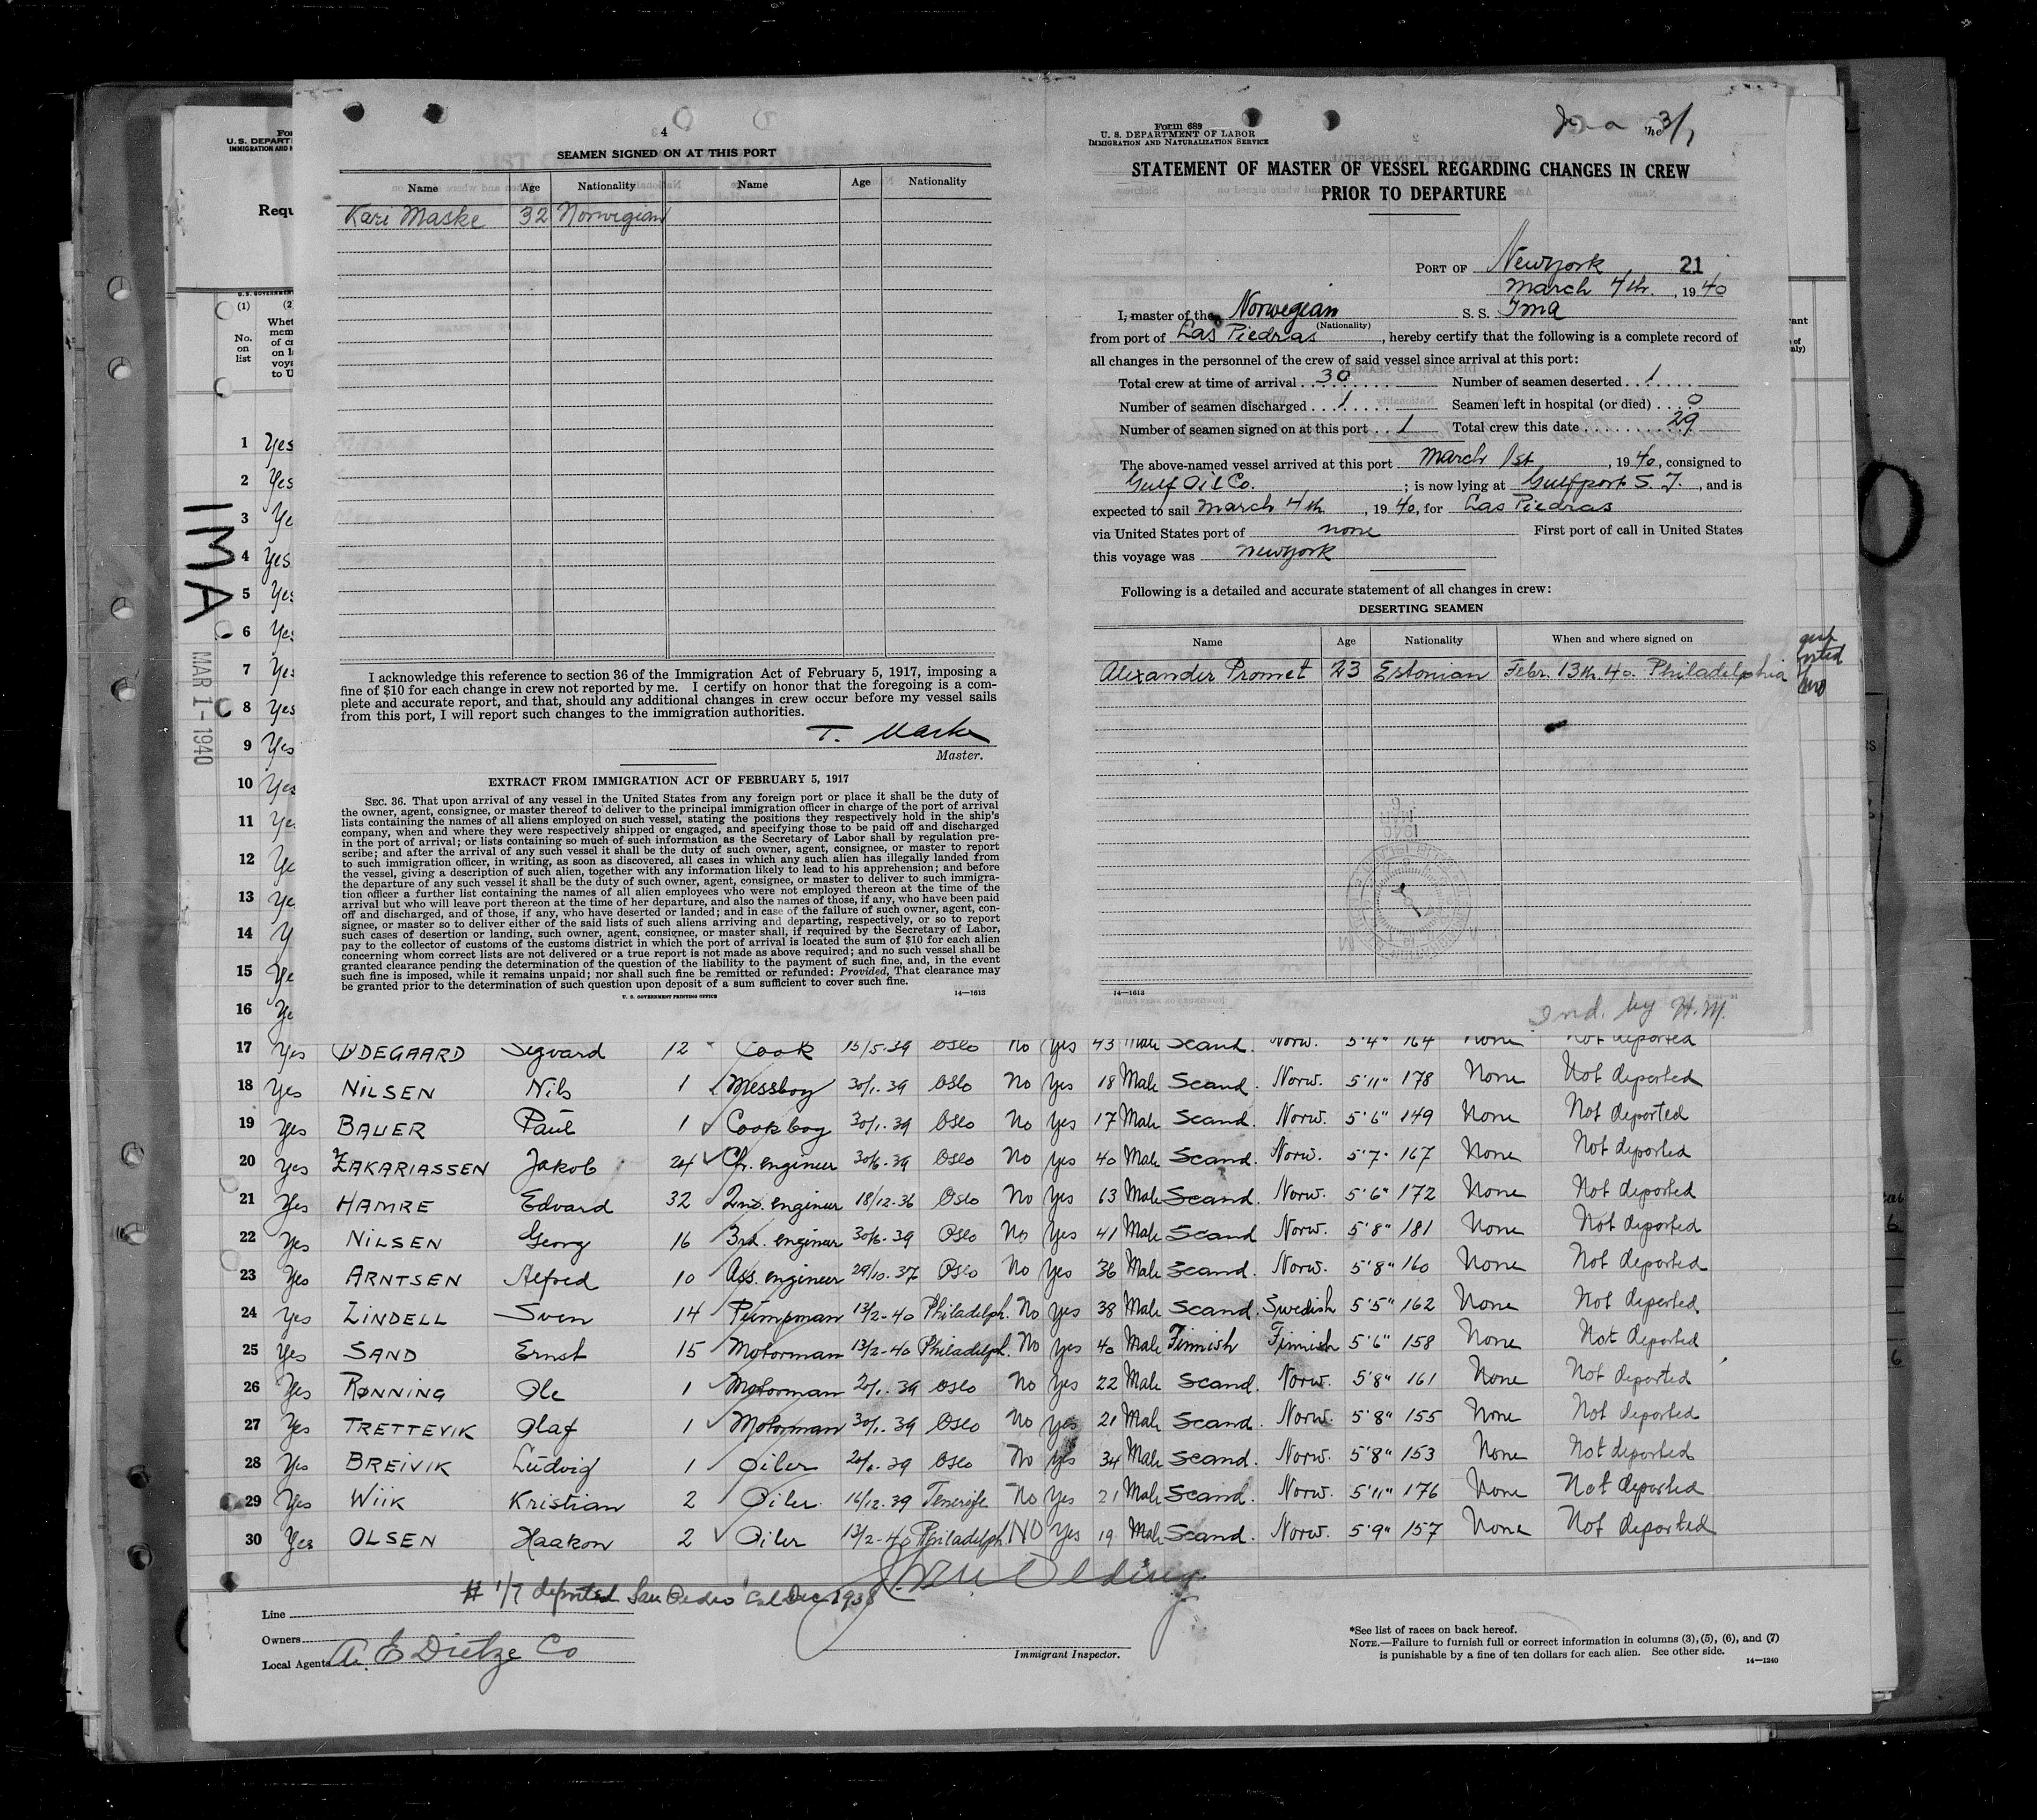 4
SEAMEN SIGNED ON AT THIS PORT
Name Age Nationality Name Age Nationality
Kari Maske 32 Norwegian
I acknowledge this reference to section 36 of the Immigration Act of February 5, 1917, imposing a
fine of $10 for each change in crew not reported by me. I certify on honor that the foregoing is a com-
plete and accurate report, and that, should any additional changes in crew occur before my vessel sails
from this port, I will report such changes to the immigration authorities.
T. Maske
Master.
EXTRACT FROM IMMIGRATION ACT OF FEBRUARY 5, 1917
SEC. 36. That upon arrival of any vessel in the United States from any foreign port or place it shall be the duty of
the owner, agent, consignee, or master thereof to deliver to the principal immigration officer in charge of the port of arrival
lists containing the names of all aliens employed on such vessel, stating the positions they respectively hold in the ship's
company, when and where they were respectively shipped or engaged, and specifying those to be paid off and discharged
in the port of arrival; or lists containing so much of such information as the Secretary of Labor shall by regulation pre-
scribe; and after the arrival of any such vessel it shall be the duty of such owner, agent, consignee, or master to report
to such immigration officer, in writing, as soon as discovered, all cases in which any such alien has illegally landed from
the vessel, giving a description of such alien, together with any information likely to lead to his apprehension; and before
the departure of any such vessel it shall be the duty of such owner, agent, consignee, or master to deliver to such immigra-
tion officer a further list containing the names of all alien employees who were not employed thereon at the time of the
arrival but who will leave port thereon at the time of her departure, and also the names of those, if any, who have been paid
off and discharged, and of those, if any, who have deserted or landed; and in case of the failure of such owner, agent, con-
signee, or master so to deliver either of the said lists of such aliens arriving and departing, respectively, or so to report
such cases of desertion or landing, such owner, agent, consignee, or master shall, if required by the Secretary of Labor,
pay to the collector of customs of the customs district in which the port of arrival is located the sum of $10 for each alien
concerning whom correct lists are not delivered or a true report is not made as above required; and no such vessel shall be
granted clearance pending the determination of the question of the liability to the payment of such fine, and, in the event
such fine is imposed, while it remains unpaid; nor shall such fine be remitted or refunded: Provided, That clearance may
be granted prior to the determination of such question upon deposit of a sum sufficient to cover such fine.
U. S. GOVERNMENT PRINTING OFFICE 14—1613
Form 689
U. S. DEPARTMENT OF LABOR
IMMIGRATION AND NATURALIZATION SERVICE
3/1
STATEMENT OF MASTER OF VESSEL REGARDING CHANGES IN CREW
PRIOR TO DEPARTURE
PORT OF Newyork 21
March 4th. , 1940
I, master of the Norwegian S. S. Ima
(Nationality)
from port of Las Piedras , hereby certify that the following is a complete record of
all changes in the personnel of the crew of said vessel since arrival at this port:
Total crew at time of arrival 30 Number of seamen deserted 1
Number of seamen discharged 1 Seamen left in hospital (or died) 0
Number of seamen signed on at this port 1 Total crew this date 29
The above-named vessel arrived at this port March 1st , 1940, consigned to
Gulf Oil Co. ; is now lying at Gulfport S. I. , and is
expected to sail March 4th , 1940, for Las Piedras
via United States port of none First port of call in United States
this voyage was Newyork
Following is a detailed and accurate statement of all changes in crew:
DESERTING SEAMEN
Name Age Nationality When and where signed on
Alexander Promet 23 Estonian Febr. 13th. 40. Philadelphia
14—1613
Ind. by H.M.
U. S. DEPART
IMMIGRATION AND
Requ
(1) (2
No. on list
IMA
MAR 1 - 1940
1 Yes
2 Yes
3 Ye
4 Yes
5 Yes
6 Yes
7 Yes
8 Yes
9 Yes
10 Yes
11 Ye
12 Ye
13 Ye
14 Y
15 Ye
16 Ye
17 Yes ØDEGAARD Sigvard 12 Cook 15/5-39 Oslo No Yes 43 Male Scand. Norw. 5'4" 164 None Not deported
18 Yes NILSEN Nils 1 Messboy 30/1-39 Oslo No Yes 18 Male Scand. Norw. 5'11" 178 None Not deported
19 Yes BAUER Paul 1 Cooksboy 30/1-39 Oslo No Yes 17 Male Scand. Norw. 5'6" 149 None Not deported
20 Yes ZAKARIASSEN Jakob 24 Ch. engineer 30/6-39 Oslo No Yes 40 Male Scand. Norw. 5'7" 167 None Not deported
21 Yes HAMRE Edvard 32 2nd. engineer 18/12-36 Oslo No Yes 63 Male Scand. Norw. 5'6" 172 None Not deported
22 Yes NILSEN Georg 16 3rd. engineer 30/6-39 Oslo No Yes 41 Male Scand Norw. 5'8" 181 None Not deported
23 Yes ARNTSEN Alfred 10 Ass. engineer 29/10-37 Oslo No Yes 36 Male Scand. Norw. 5'8" 160 None Not deported
24 Yes LINDELL Sven 14 Pumpman 13/2-40 Philadelph. No Yes 38 Male Scand. Swedish 5'5" 162 None Not deported
25 Yes SAND Ernst 15 Motorman 13/2-40 Philadelph. No Yes 40 Male Finnish Finnish 5'6" 158 None Not deported
26 Yes RØNNING Ole 1 Motorman 39 Oslo No Yes 22 Male Scand. Norw. 5'8" 161 None Not deported
27 Yes TRETTEVIK Olaf 1 Motorman 30/1-39 Oslo No Yes 21 Male Scand. Norw. 5'8" 155 None Not deported
28 Yes BREIVIK Ludvig 1 Oiler 39 Oslo No Yes 34 Male Scand. Norw. 5'8" 153 None Not deported
29 Yes WIIK Kristian 2 Oiler 16/12-39 Tenerife No Yes 21 Male Scand. Norw. 5'11" 176 None Not deported
30 Yes OLSEN Haakon 2 Oiler 13/2-40 Philadelph. NO Yes 19 Male Scand. Norw. 5'9" 157 None Not deported
# 1/7 deported San Pedro Cal Dec 1938
Line
Owners
Local Agents A. E Dietze Co
Immigrant Inspector.
*See list of races on back hereof.
NOTE.—Failure to furnish full or correct information in columns (3), (5), (6), and (7)
is punishable by a fine of ten dollars for each alien. See other side.
14—1240